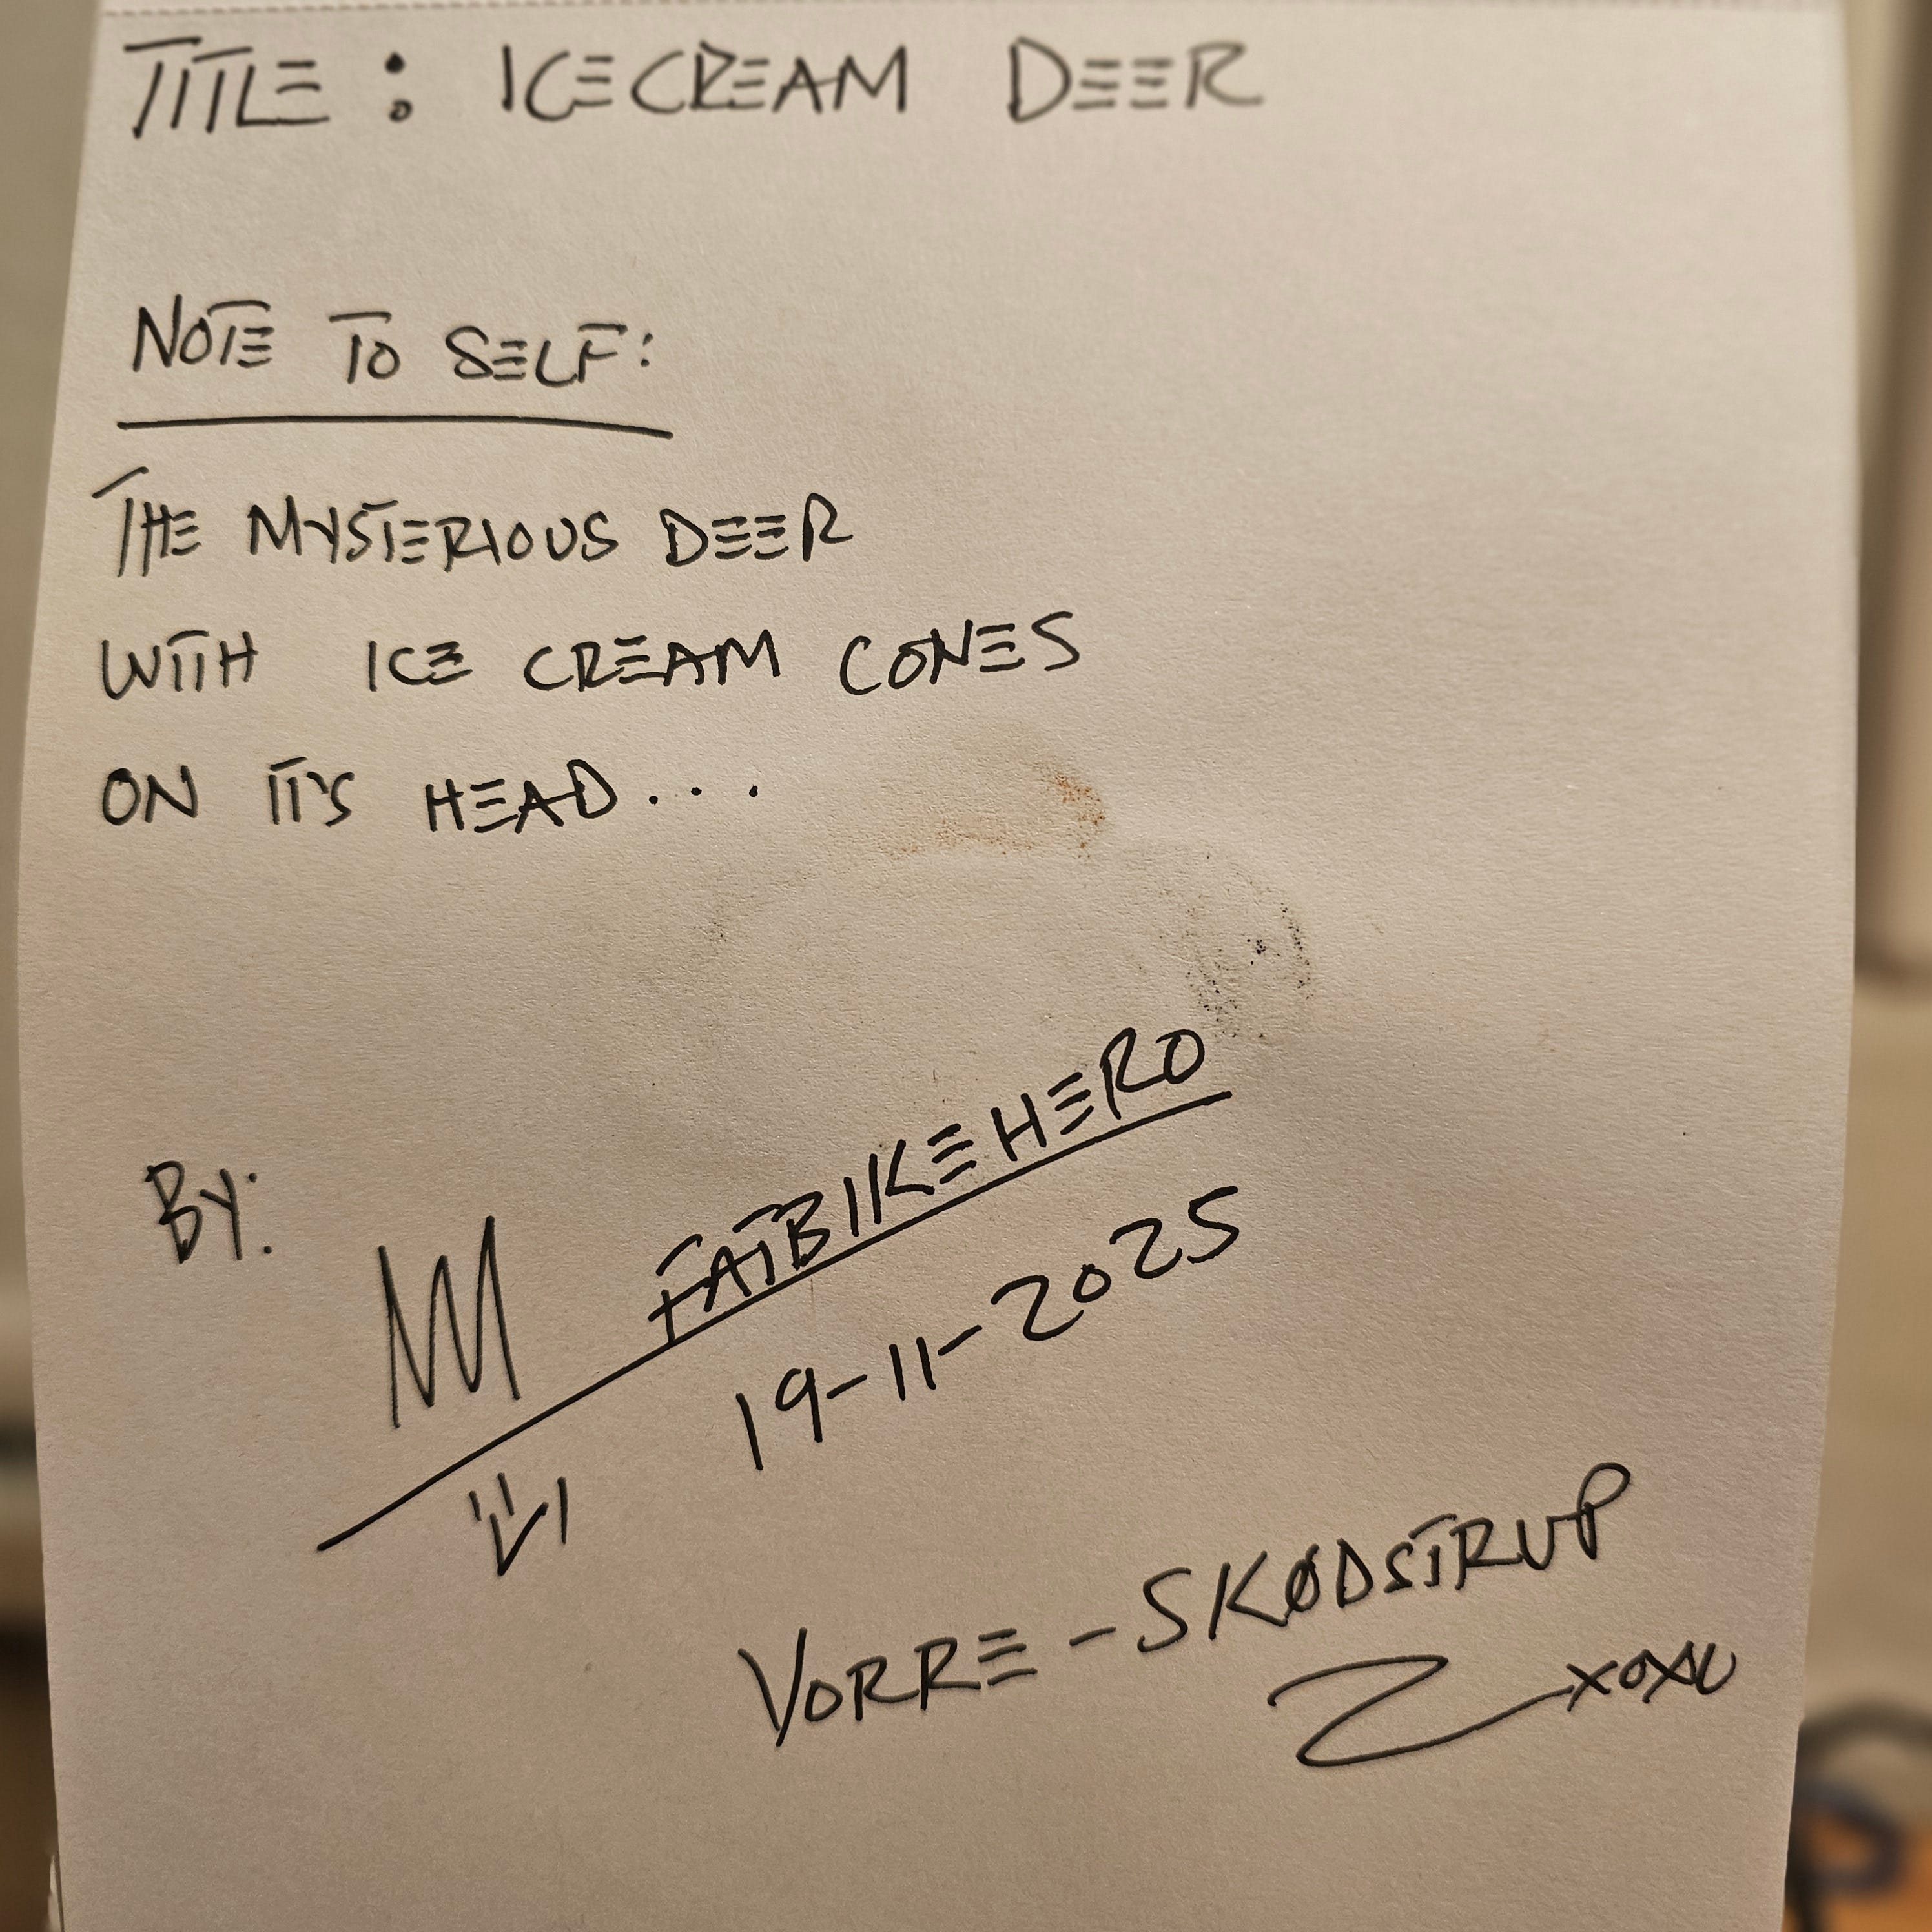 TITLE: ICECREAM DEER
NOTE TO SELF:
THE MYSTERIOUS DEER
WITH ICE CREAM CONES
ON IT'S HEAD....
BY:
FATBIKEHERO
19-11-2025
VORRE-SKØDSTRUP
XOXO